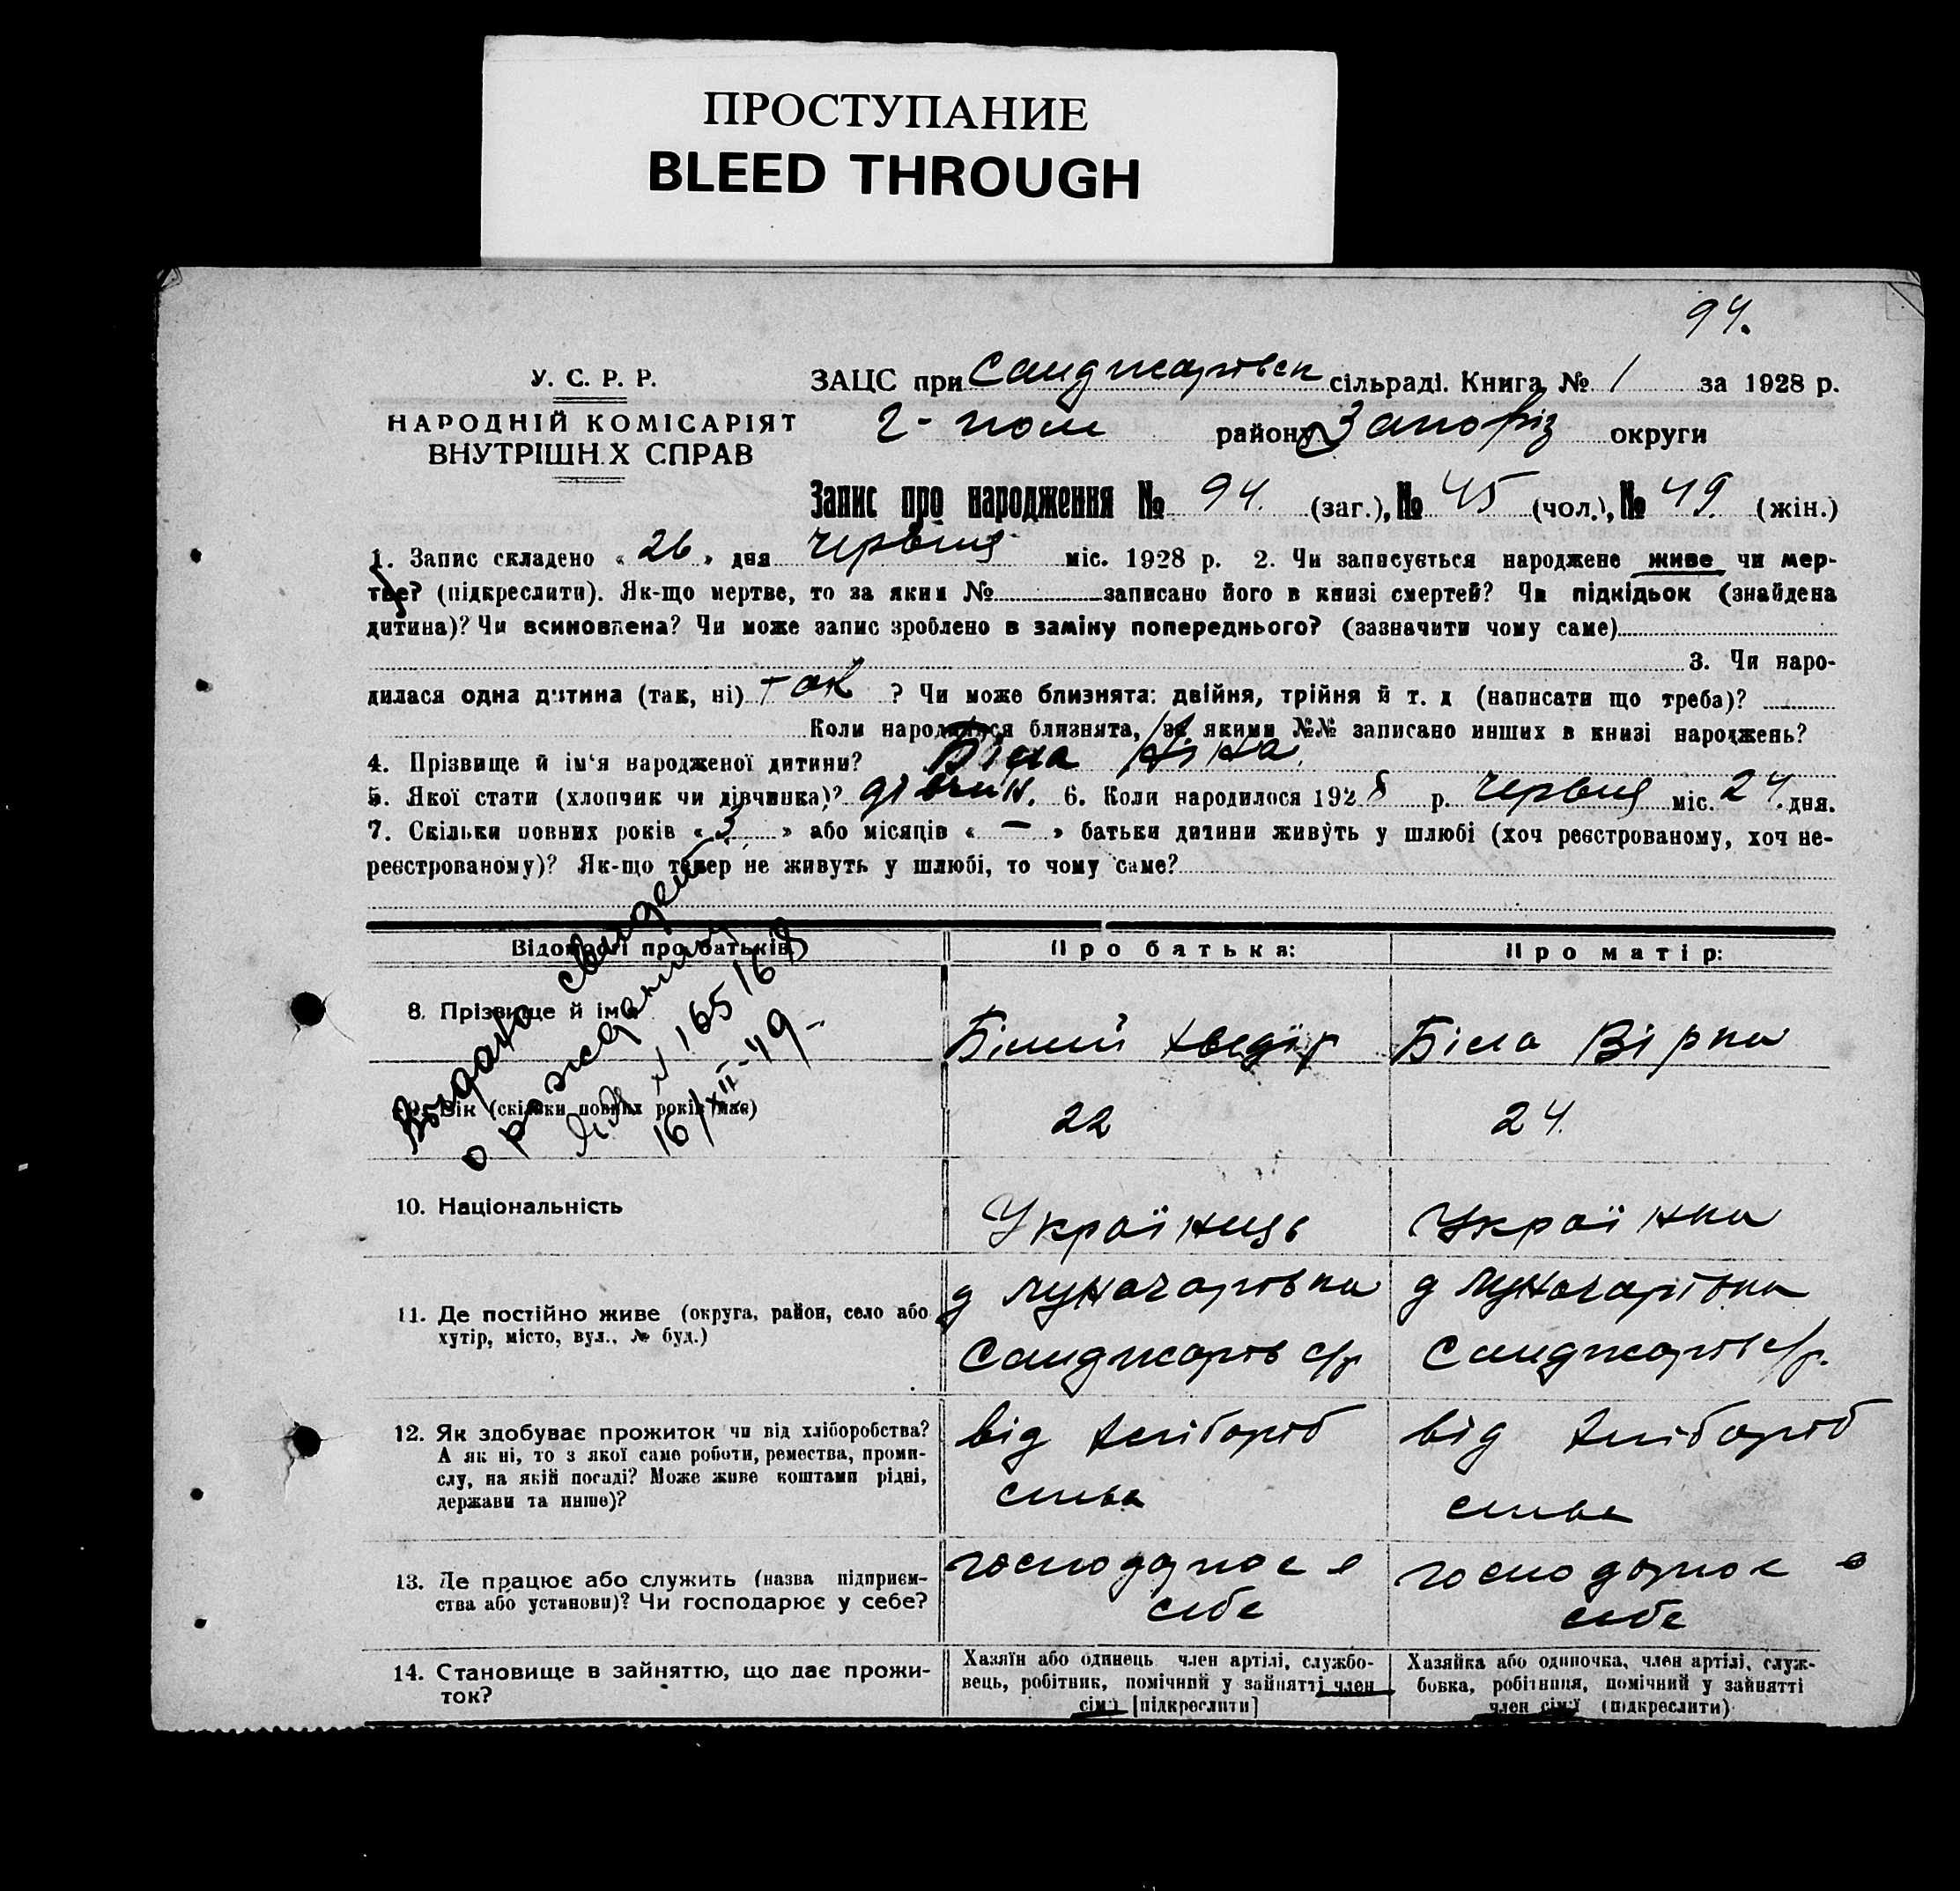 ПРОСТУПАНИЕ
BLEED THROUGH
94.
У. С. Р. Р.
НАРОДНІЙ КОМІСАРІЯТ
ВНУТРІШН.Х СПРАВ
ЗАЦС при Санджарівськ сільраді. Книга № 1 за 1928 р.
г-пол району Запоріз округи
Запис про народження № 94. (заг.), № 45 (чол.), № 49. (жін.)
1. Запис складено « 26 » дня червня міс. 1928 р. 2. Чи записується народжене живе чи мер-
тве? (підкреслити). Як-що мертве, то за яким № записано його в книзі смертей? Чи підкідьок (знайдена
дитина)? Чи всиновлена? Чи може запис зроблено в заміну попереднього? (зазначити чому саме)
3. Чи наро-
дилася одна дитина (так, ні) так ? Чи може близнята: двійня, трійня й т. д (написати що треба)?
Коли народилися близнята, за якими №№ записано инших в книзі народжень?
4. Прізвище й ім'я народженої дитини? Біла Ніна.
5. Якої стати (хлопчик чи дівчинка)? дівчин. 6. Коли народилося 1928 р. червня міс. 24. дня.
7. Скільки повних років « 3 » або місяців « — » батьки дитини живуть у шлюбі (хоч реєстрованому, хоч не-
реєстрованому)? Як-що тепер не живуть у шлюбі, то чому саме?
Відомості про батьків Про батька: Про матір:
8. Прізвище й ім'я Білий Хведір Біла Вірка
9. Вік (скільки повних років має) 22 24.
Выдано свидет
о рождении
№ 165168
16/XII-49-
10. Національність Українець Українка
11. Де постійно живе (округа, район, село або
хутір, місто, вул., № буд.)
д Луначарівка
Санджарів с/р
д Луначарівка
Санджарів с/р.
12. Як здобуває прожиток чи від хліборобства?
А як ні, то з якої саме роботи, ремества, проми-
слу, на якій посаді? Може живе коштами рідні,
держави та инше)?
від хлібороб
ства
від хлібороб
ства
13. Де працює або служить (назва підприєм-
ства або установи)? Чи господарює у себе?
господарює в
себе
господарює в
себе
14. Становище в зайняттю, що дає прожи-
ток?
Хазяїн або одинець член артілі, службо-
вець, робітник, помічний у зайнятті член
сім'ї [підкреслити]
Хазяйка або одиночка, член артілі, служ-
бовка, робітниця, помічний у зайнятті
член сім'ї (підкреслити)